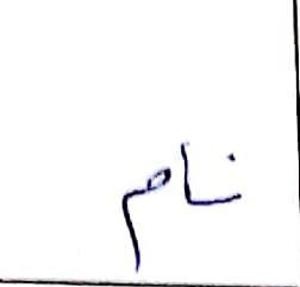 نام